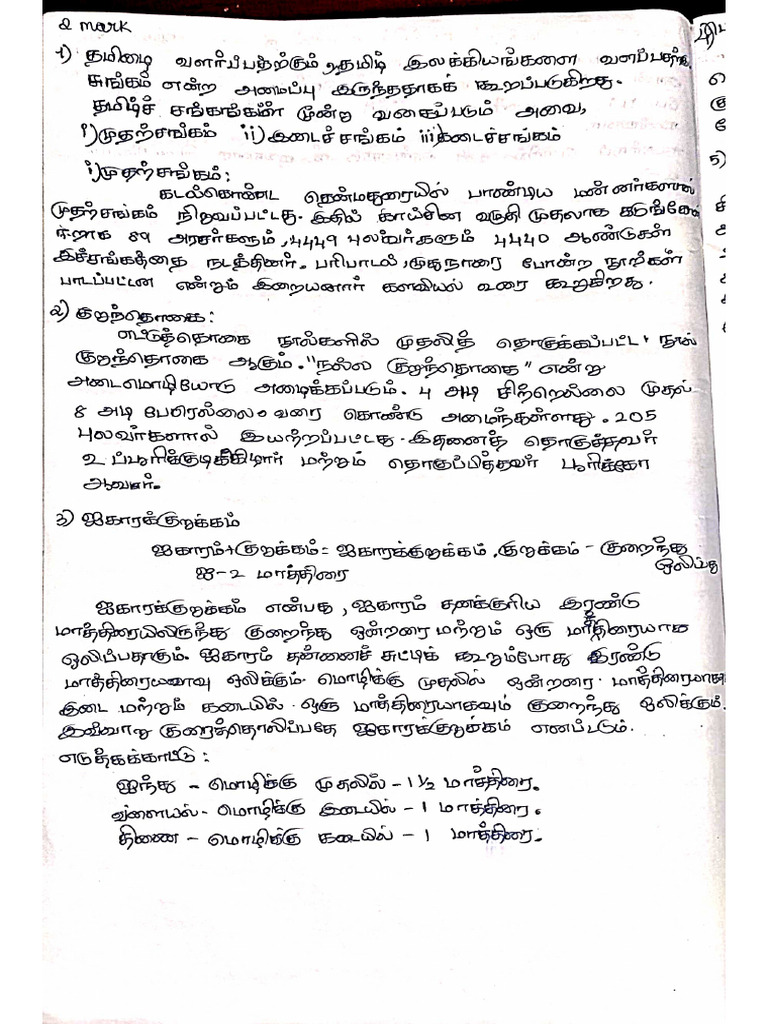 2 mark
1) தமிழை வளர்ப்பதற்கும், தமிழ் இலக்கியங்களை வளப்பதற்கு
சங்கம் என்ற அமைப்பு இருந்ததாகக் கூறப்படுகிறது.
தமிழ்ச் சங்கங்கள் மூன்று வகைப்படும் அவை,
i) முதற்சங்கம் ii) இடைச்சங்கம் iii) கடைச்சங்கம்
i) முதற்சங்கம்:
கடல்கொண்ட தென்மதுரையில் பாண்டிய மன்னர்களால்
முதற்சங்கம் நிறுவப்பட்டது. இதில் காய்சின வழுதி முதலாக கடுங்கோன்
ஈறாக 89 அரசர்களும், 4449 புலவர்களும் 4440 ஆண்டுகள்
இச்சங்கத்தை நடத்தினர். பரிபாடல், முதுநாரை போன்ற நூல்கள்
பாடப்பட்டன என்றும் இறையனார் களவியல் உரை கூறுகிறது.
2) குறுந்தொகை:
எட்டுத்தொகை நூல்களில் முதலித் தொகுக்கப்பட்ட நூல்
குறுந்தொகை ஆகும். "நல்ல குறுந்தொகை" என்று
அடைமொழியோடு அழைக்கப்படும். 4 அடி சிற்றெல்லை முதல்
8 அடி பேரெல்லை வரை கொண்டு அமைந்துள்ளது. 205
புலவர்களால் இயற்றப்பட்டது. இதனைத் தொகுத்தவர்
உப்பூரிக்குடிக்கிழார் மற்றும் தொகுப்பித்தவர் பூரிக்கோ
ஆவார்.
3) ஐகாரக்குறுக்கம்
ஐகாரம்+குறுக்கம்= ஐகாரக்குறுக்கம். குறுக்கம் - குறைந்து
ஒலிப்பது
ஐ-2 மாத்திரை
ஐகாரக்குறுக்கம் என்பது, ஐகாரம் தனக்குரிய இரண்டு
மாத்திரையிலிருந்து குறைந்து ஒன்றரை மற்றும் ஒரு மாத்திரையாக
ஒலிப்பதாகும். ஐகாரம் தன்னைச் சுட்டிக் கூறும்போது இரண்டு
மாத்திரையளவு ஒலிக்கும். மொழிக்கு முதலில் ஒன்றரை மாத்திரையாக
இடை மற்றும் கடையில் ஒரு மாத்திரையாகவும் குறைந்து ஒலிக்கும்.
இவ்வாறு குறைத்தொலிப்பதே ஐகாரக்குறுக்கம் எனப்படும்.
எடுத்துக்காட்டு:
ஐந்து - மொழிக்கு முதலில் - 1 1/2 மாத்திரை.
வளையல் - மொழிக்கு இடையில் - 1 மாத்திரை.
திணை - மொழிக்கு கடையில் - 1 மாத்திரை.
5)